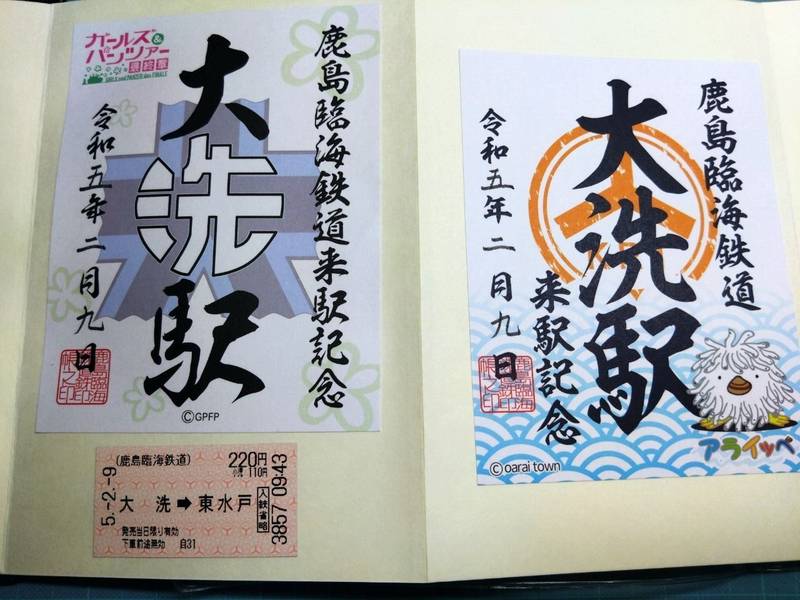 ガールズ&
パンツァー
最終章
GIRLS und PANZER das FINALE
鹿島臨海鉄道来駅記念
大洗駅
令和五年二月九日
鹿島臨海
鉄道鉄印
帳之印
©GPFP
(鹿島臨海鉄道)
220円
小児110円
5.-2.-9
大洗➡東水戸
入鋏省略
3857 09:43
発売当日限り有効
下車前途無効 自31
鹿島臨海鉄道
来駅記念
大洗駅
令和五年二月九日
アライッペ
© oarai town